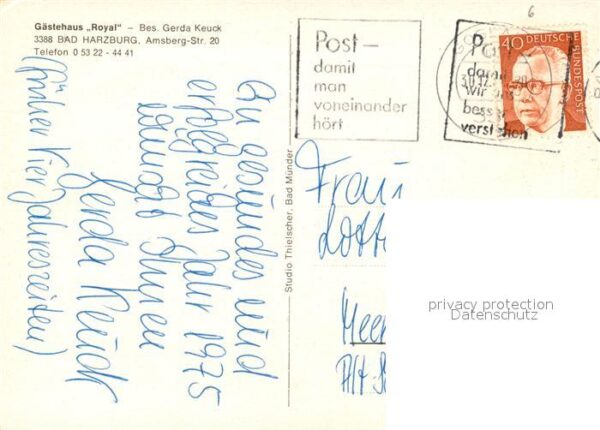 Gästehaus „Royal" – Bes. Gerda Keuck
3388 BAD HARZBURG, Amsberg-Str. 20
Telefon 0 53 22 - 44 41
Ein gesundes und
erfolgreiches Jahr 1975
wünscht Ihnen
Gerda Keuck
(früher Vier Jahreszeiten)
Studio Thielscher, Bad Münder
6
Post –
damit
man
voneinander
hört
Po
damit
wir uns
besser
verstehen
40 DEUTSCHE BUNDESPOST
Frau
Lotte
Meer
Alt-
privacy protection
Datenschutz